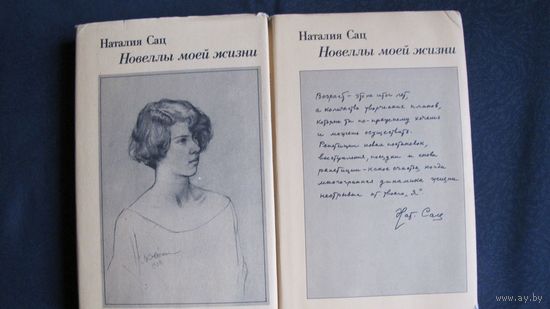 Наталия Сац
Новеллы моей жизни
Наталия Сац
Новеллы моей жизни
Возраст – это не итог лет,
а количество творческих планов,
которые ты по-прежнему хочешь
и можешь осуществить.
Репетиции новых постановок,
выступления, поездки и снова
репетиции – какое счастье, когда
многогранная динамика жизни
неотрывна от твоего „я"
Нат. Сац
www.ay.by